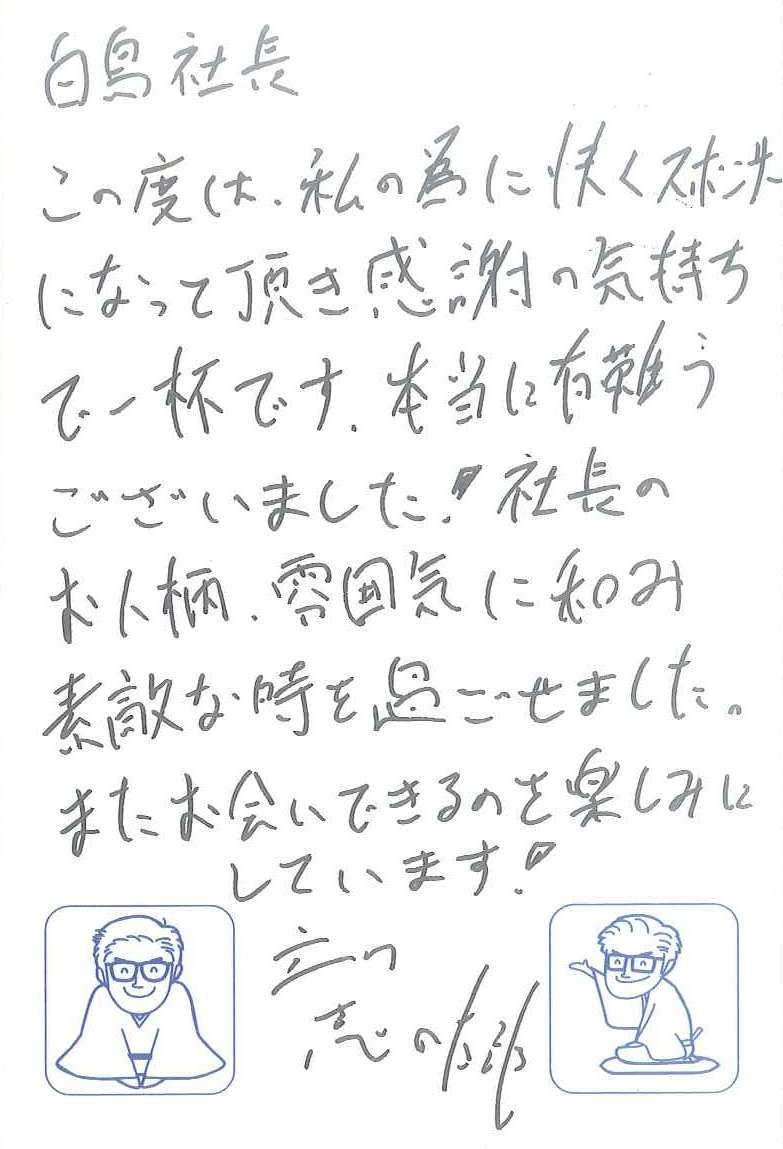 白鳥社長
この度は、私の為に快くスポンサー
になって頂き感謝の気持ち
で一杯です。本当に有難う
ございました!社長の
お人柄、雰囲気に和み
素敵な時を過ごせました。
またお会いできるのを楽しみに
しています!
立川
志の太郎